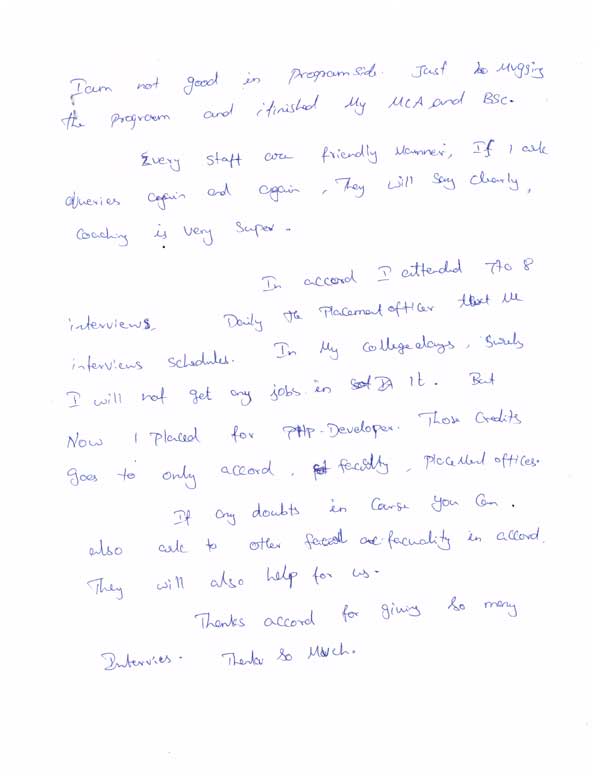 I am not good in Program side. Just Mugging
the program and i finished My MCA and BSc.
Every staff are friendly Manner, If I ask
queries again and again, They will Say Clearly,
Coaching is very Super.
In accord I attended 7 to 8
interviews. Daily the Placement officer Me
interviews schedules. In My college days, Surely
I will not get any jobs in It. But
Now I Placed for PHP-Developer. Those Credits
Goes to only accord, faculty, Placement offices.
If any doubts in Course You Can.
also ask to other facuality in accord.
They will also help for us.
Thanks accord for giving So many
Intervies. Thanks So Much.